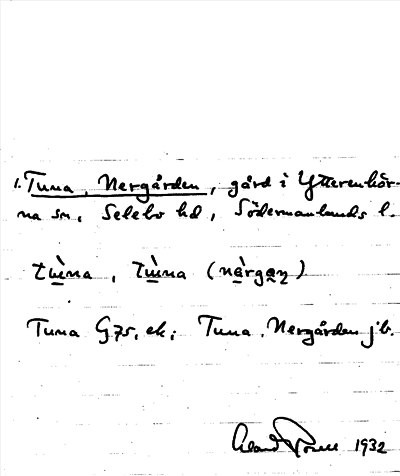 1. Tuna, Nergården, gård i Ytterenhör-
na sn, Selebo hd, Södermanlands l.
tù̲na, tù̲na (nà̲rgan̥)
Tuna G 75, ek; Tuna, Nergården jb.
1932